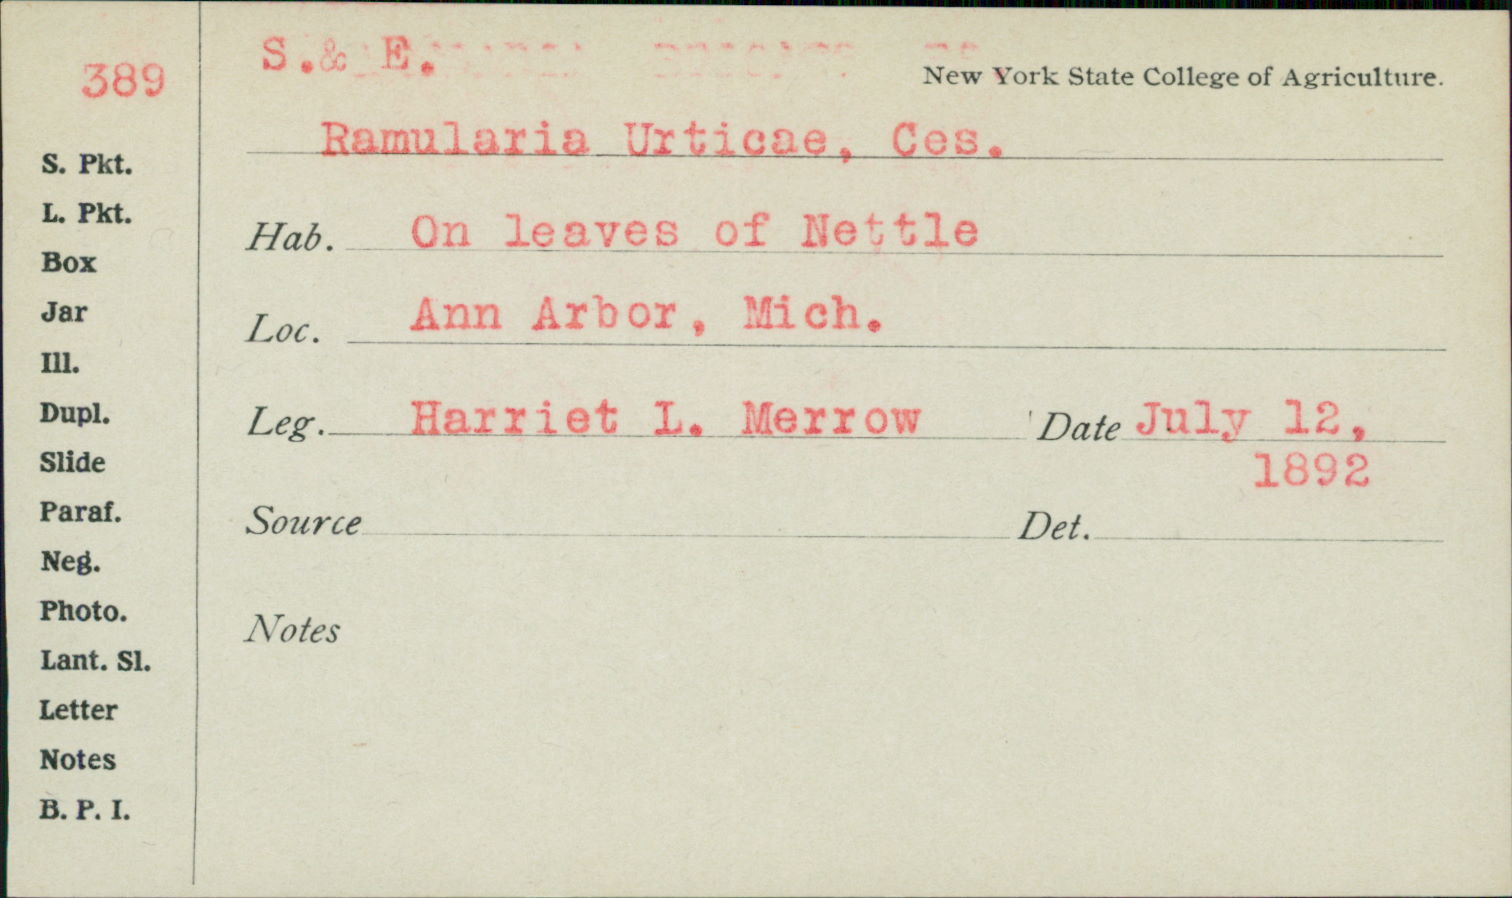 389
S. & E.
New York State College of Agriculture.
Ramularia Urticae, Ces.
Hab. On leaves of Nettle
Loc. Ann Arbor, Mich.
Leg. Harriet L. Merrow Date July 12,
1892
Source Det.
Notes
S. Pkt.
L. Pkt.
Box
Jar
Ill.
Dupl.
Slide
Paraf.
Neg.
Photo.
Lant. Sl.
Letter
Notes
B. P. I.